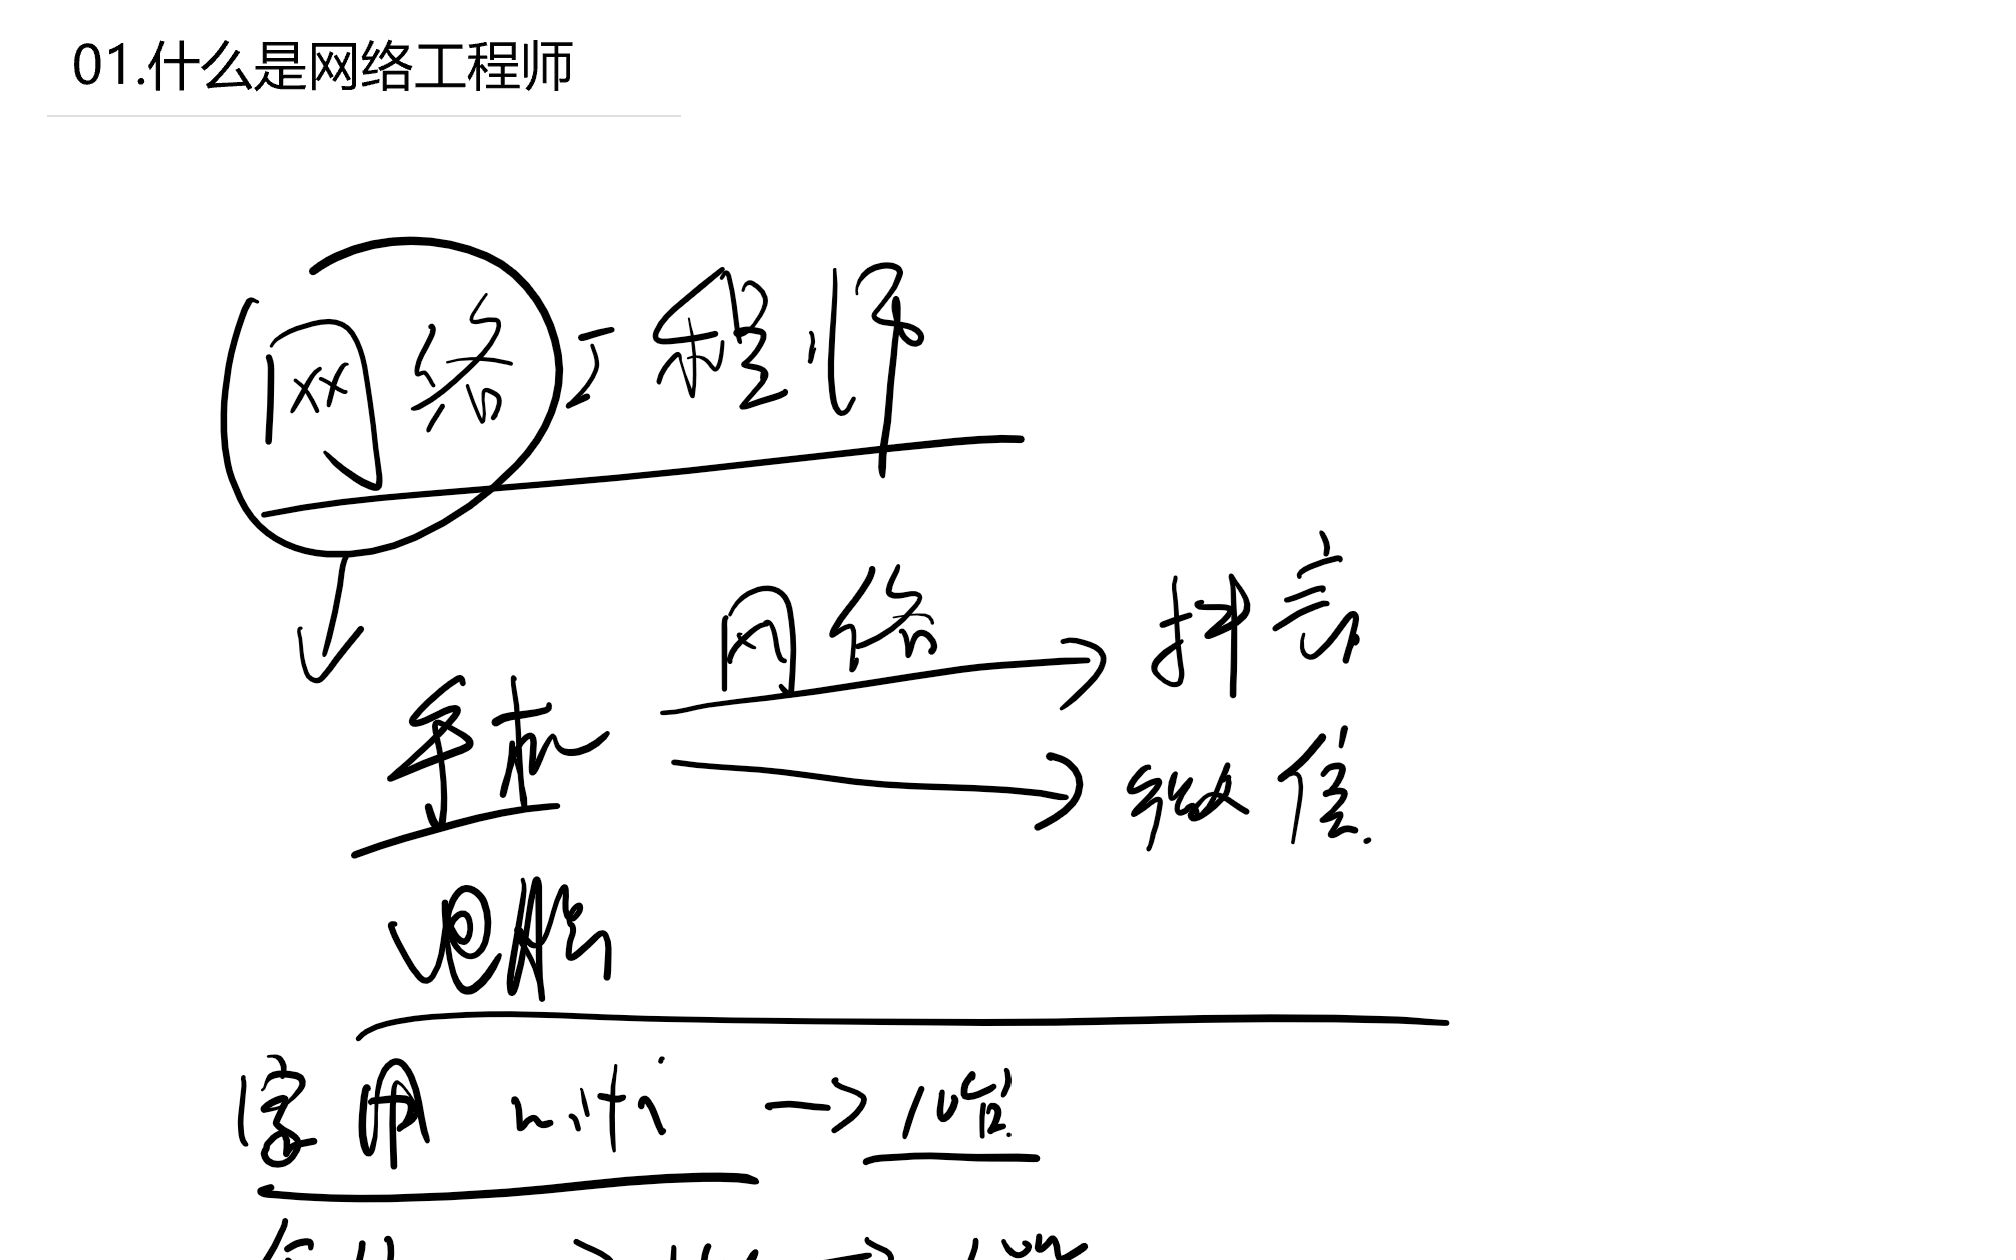 01.什么是网络工程师
网络工程师
网络 抖音
手机 微信
电脑
家用 wifi →